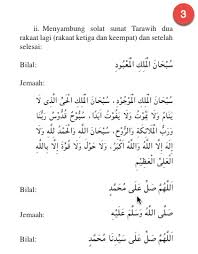 3
ii. Menyambung solat sunat Tarawih dua
rakaat lagi (rakaat ketiga dan keempat) dan setelah
selesai:
Bilal: سُبْحَانَ الْمَلِكِ الْمَعْبُودِ
Jemaah:
سُبْحَانَ الْمَلِكِ الْمَوْجُوْدِ، سُبْحَانَ الْمَلِكِ الْحَيِّ الَّذِى لَا
يَنَامُ وَلَا يَمُوْتُ وَلَا يَفُوْتُ أَبَدًا، سُبُّوحٌ قُدُّوْسٌ رَبُّنَا
وَرَبُّ الْمَلَائِكَةِ وَالرُّوْحِ، سُبْحَانَ اللَّهِ وَالْحَمْدُ لِلَّهِ وَلَا
إِلَهَ إِلَّا اللَّهُ وَاللَّهُ أَكْبَرُ، وَلَا حَوْلَ وَلَا قُوَّةَ إِلَّا بِاللَّهِ
الْعَلِيِّ الْعَظِيْمِ
Bilal: اَللَّهُمَّ صَلِّ عَلَى مُحَمَّدٍ
Jemaah: صَلَّى اللَّهُ وَسَلَّمَ عَلَيْهِ
Bilal: اَللَّهُمَّ صَلِّ عَلَى سَيِّدِنَا مُحَمَّدٍ